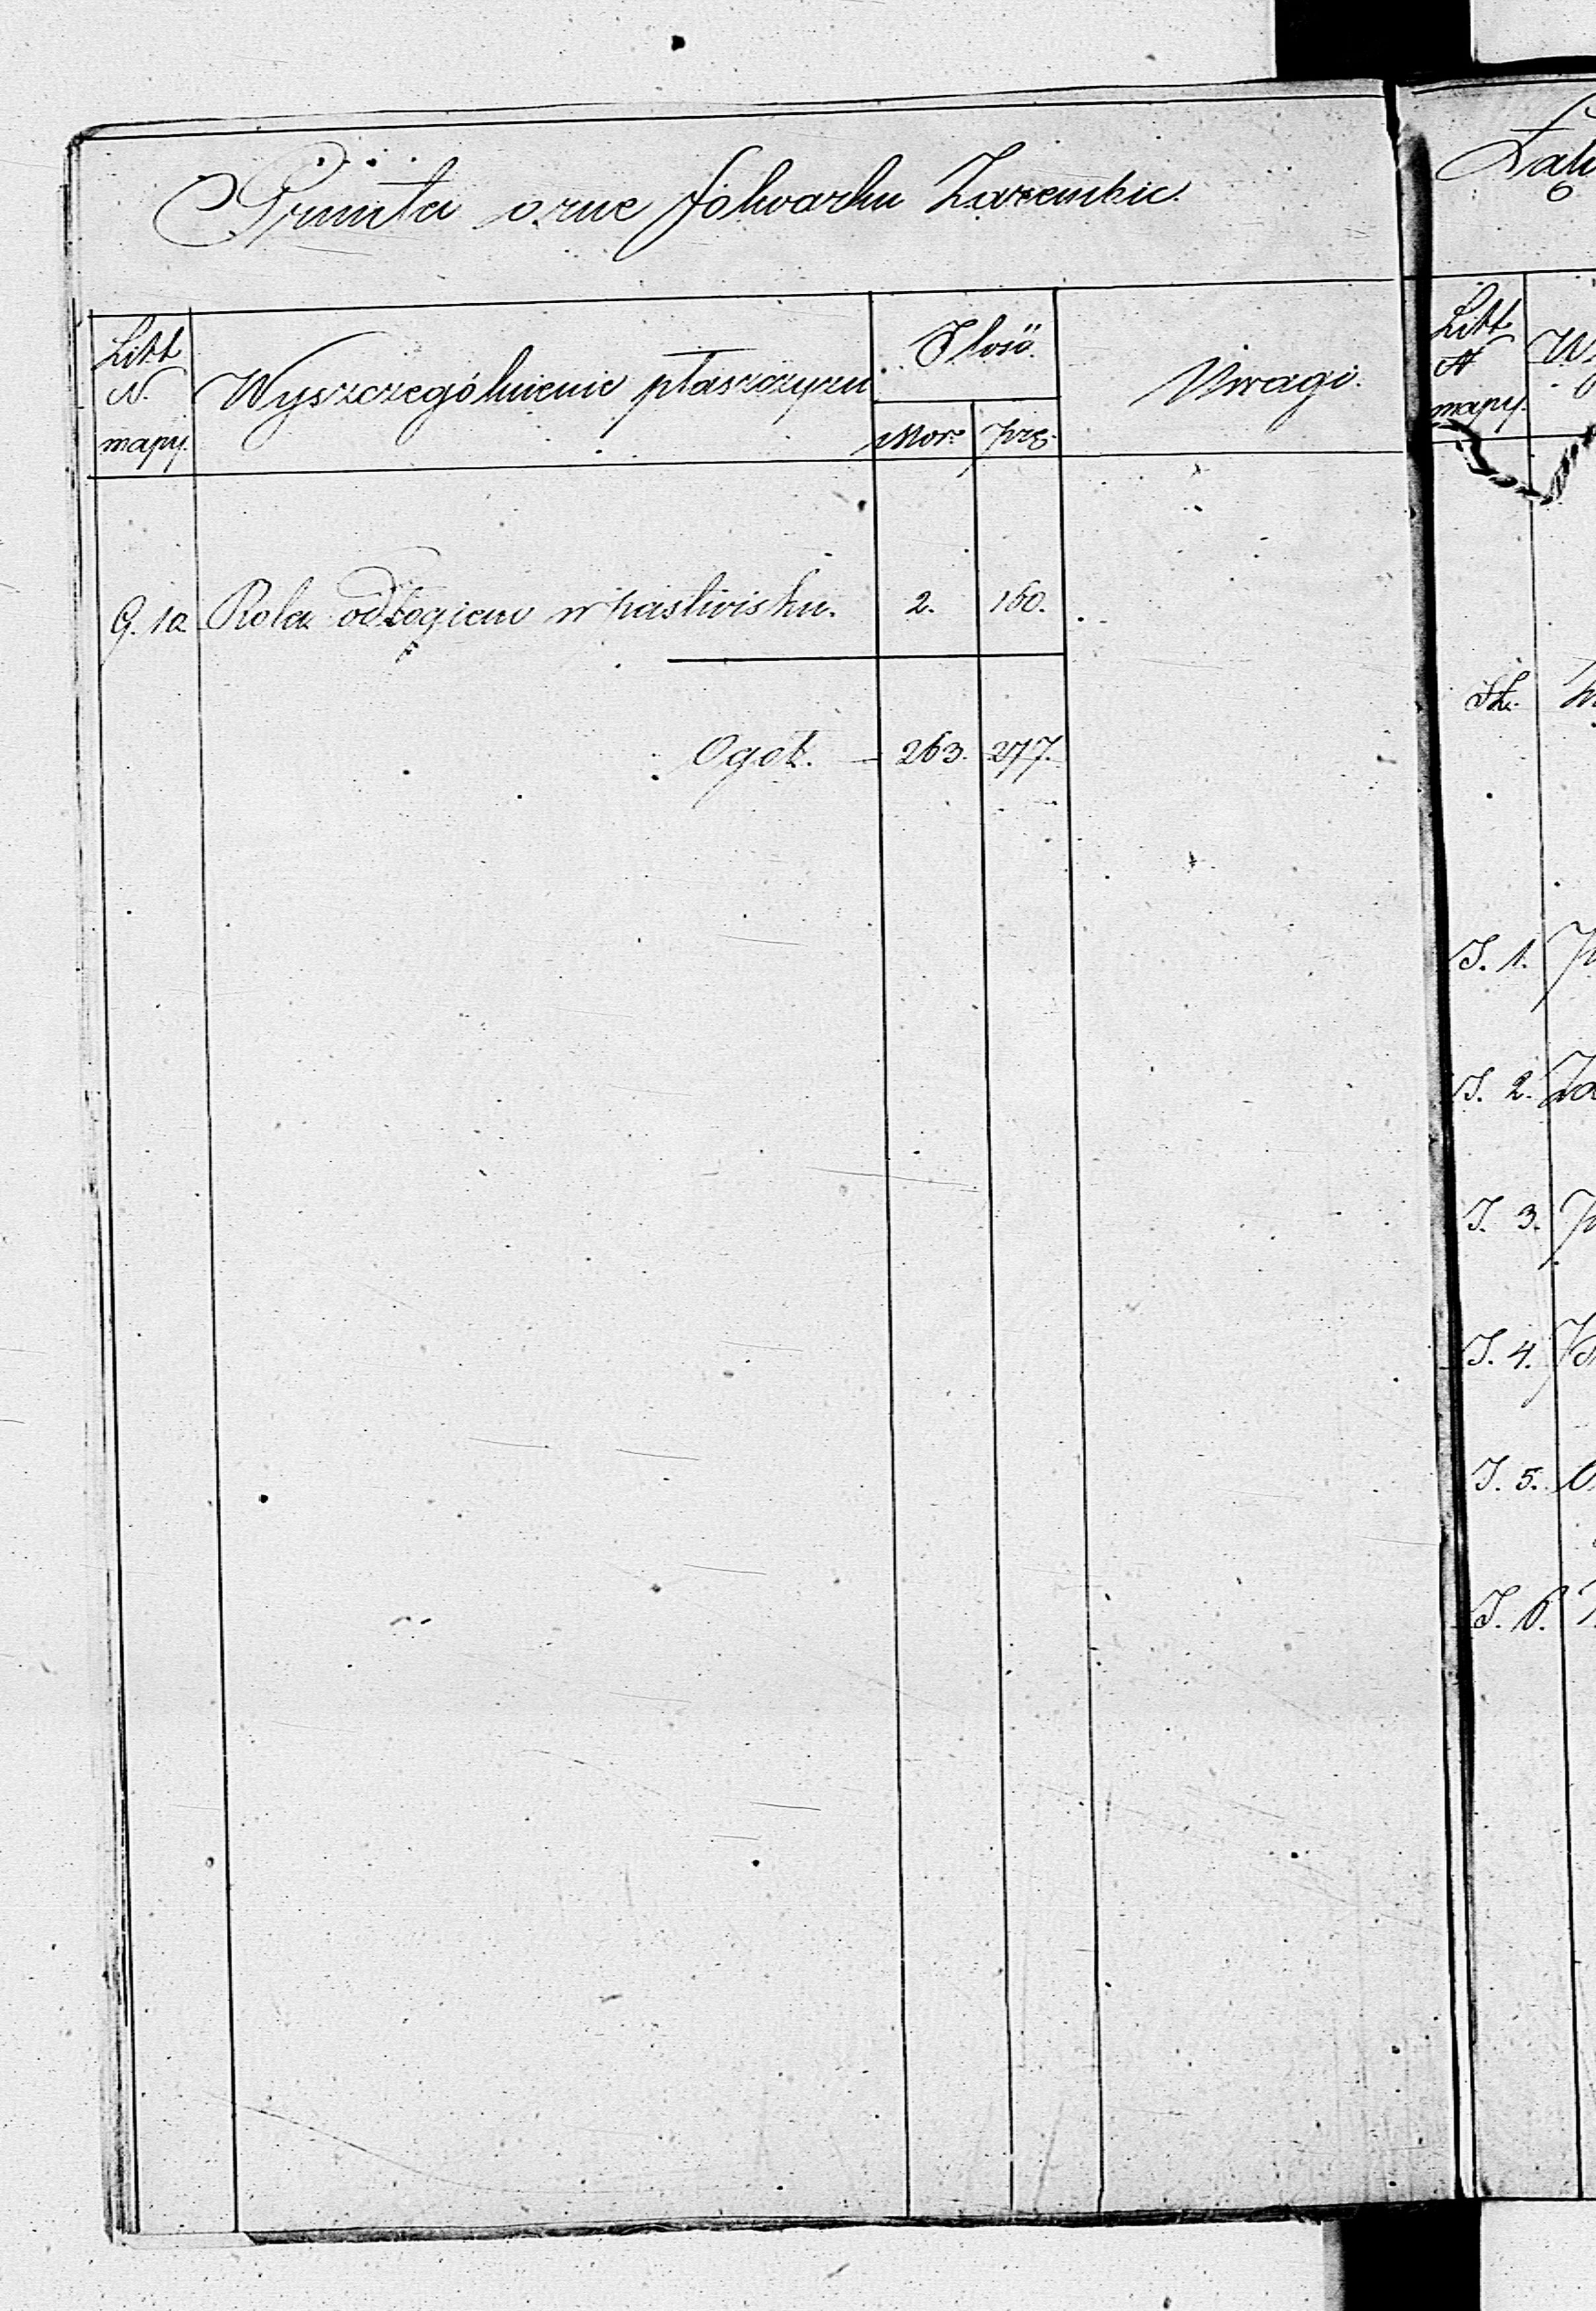 Grunta orne folwarku Zarembic.
Litt
N.
mapy.
Wyszczególnienie płaszczyzn
Ilość.
Mor.
Pręt.
Uwagi.
G. 10. Rola odłogiem w pastwisku. 2. 160.
Ogół. 263. 277.
Litt
N
mapy.
I. 1.
I. 2. Za
I. 3.
I. 4.
I. 5.
I. 6.